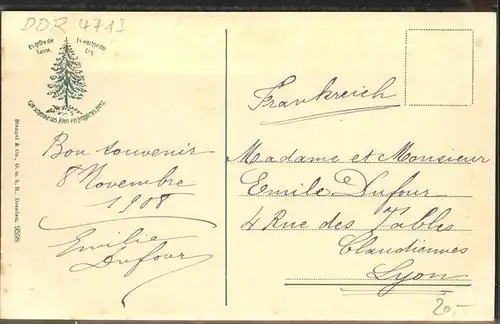 DDR 4713
Es grüne die Tanne,
Es wachse das Erz,
Gott schenke uns Allen ein fröhliches Herz.
Stengel & Co., G. m. b. H., Dresden. 9598
Bon souvenir
8 Novembre
1908
Emilie
Dufour
Frankreich
Madame et Monsieur
Emile Dufour
4 Rue des Tables
Claudiennes
Lyon
20,-